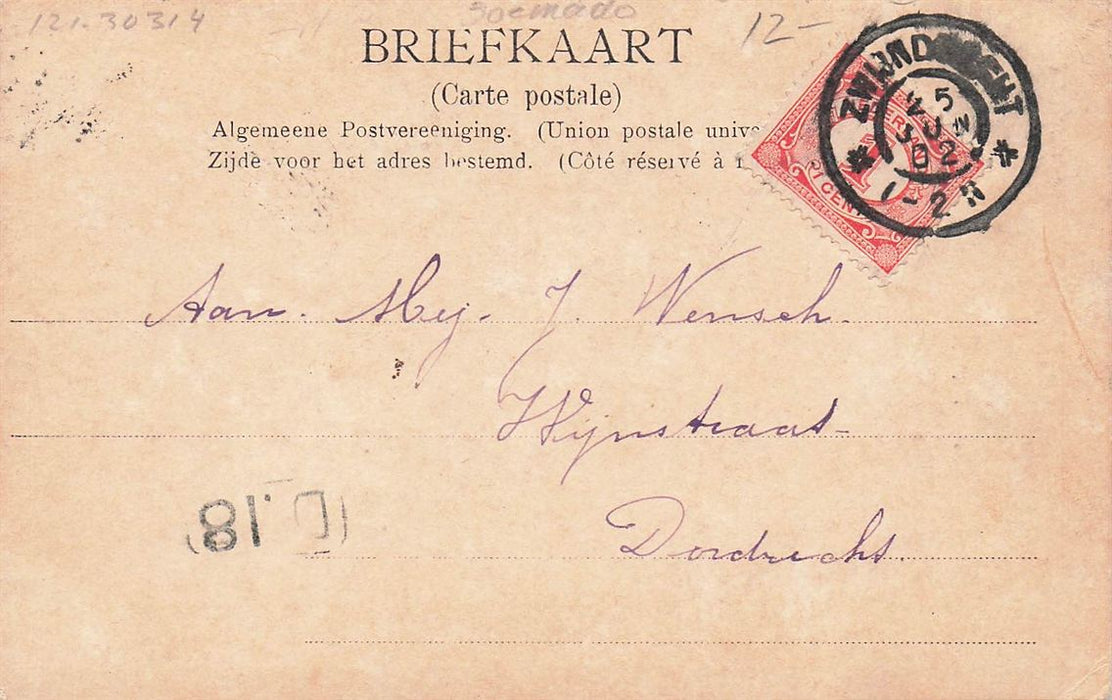 121.30314
12-
BRIEFKAART
(Carte postale)
Algemeene Postvereeniging. (Union postale unive
Zijde voor het adres bestemd. (Côté réservé à
ZWIJNDRECHT
5
02
1-2N
1
CENT
Aan. Mej. J. Wensch.
Wijnstraat-
Dordrecht.